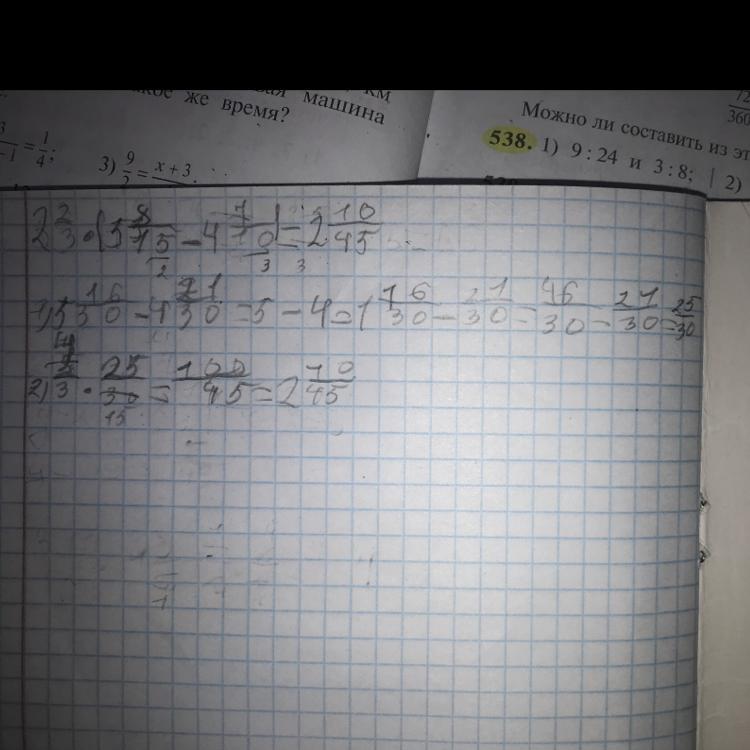 км
же время? вая машина
-1 = 1/4; 3) 9/2 = x+3
Можно ли составить из эт
72/360
538. 1) 9 : 24 и 3 : 8; 2)
2 2/3 · (5 8/15 − 4 7/10) = 2 10/45
1) 5 16/30 − 4 21/30 = 5 − 4 = 1 16/30 − 21/30 = 46/30 − 21/30 = 25/30
2) /3 · 25/30 = 100/45 = 2 10/45